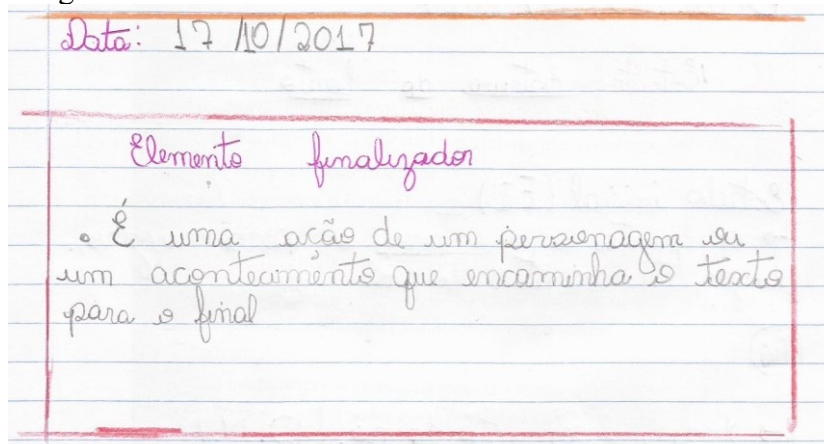 Data: 17/10/2017
Elemento finalizador
• É uma acão de um personagem ou
um acontecimento que encaminha o texto
para o final